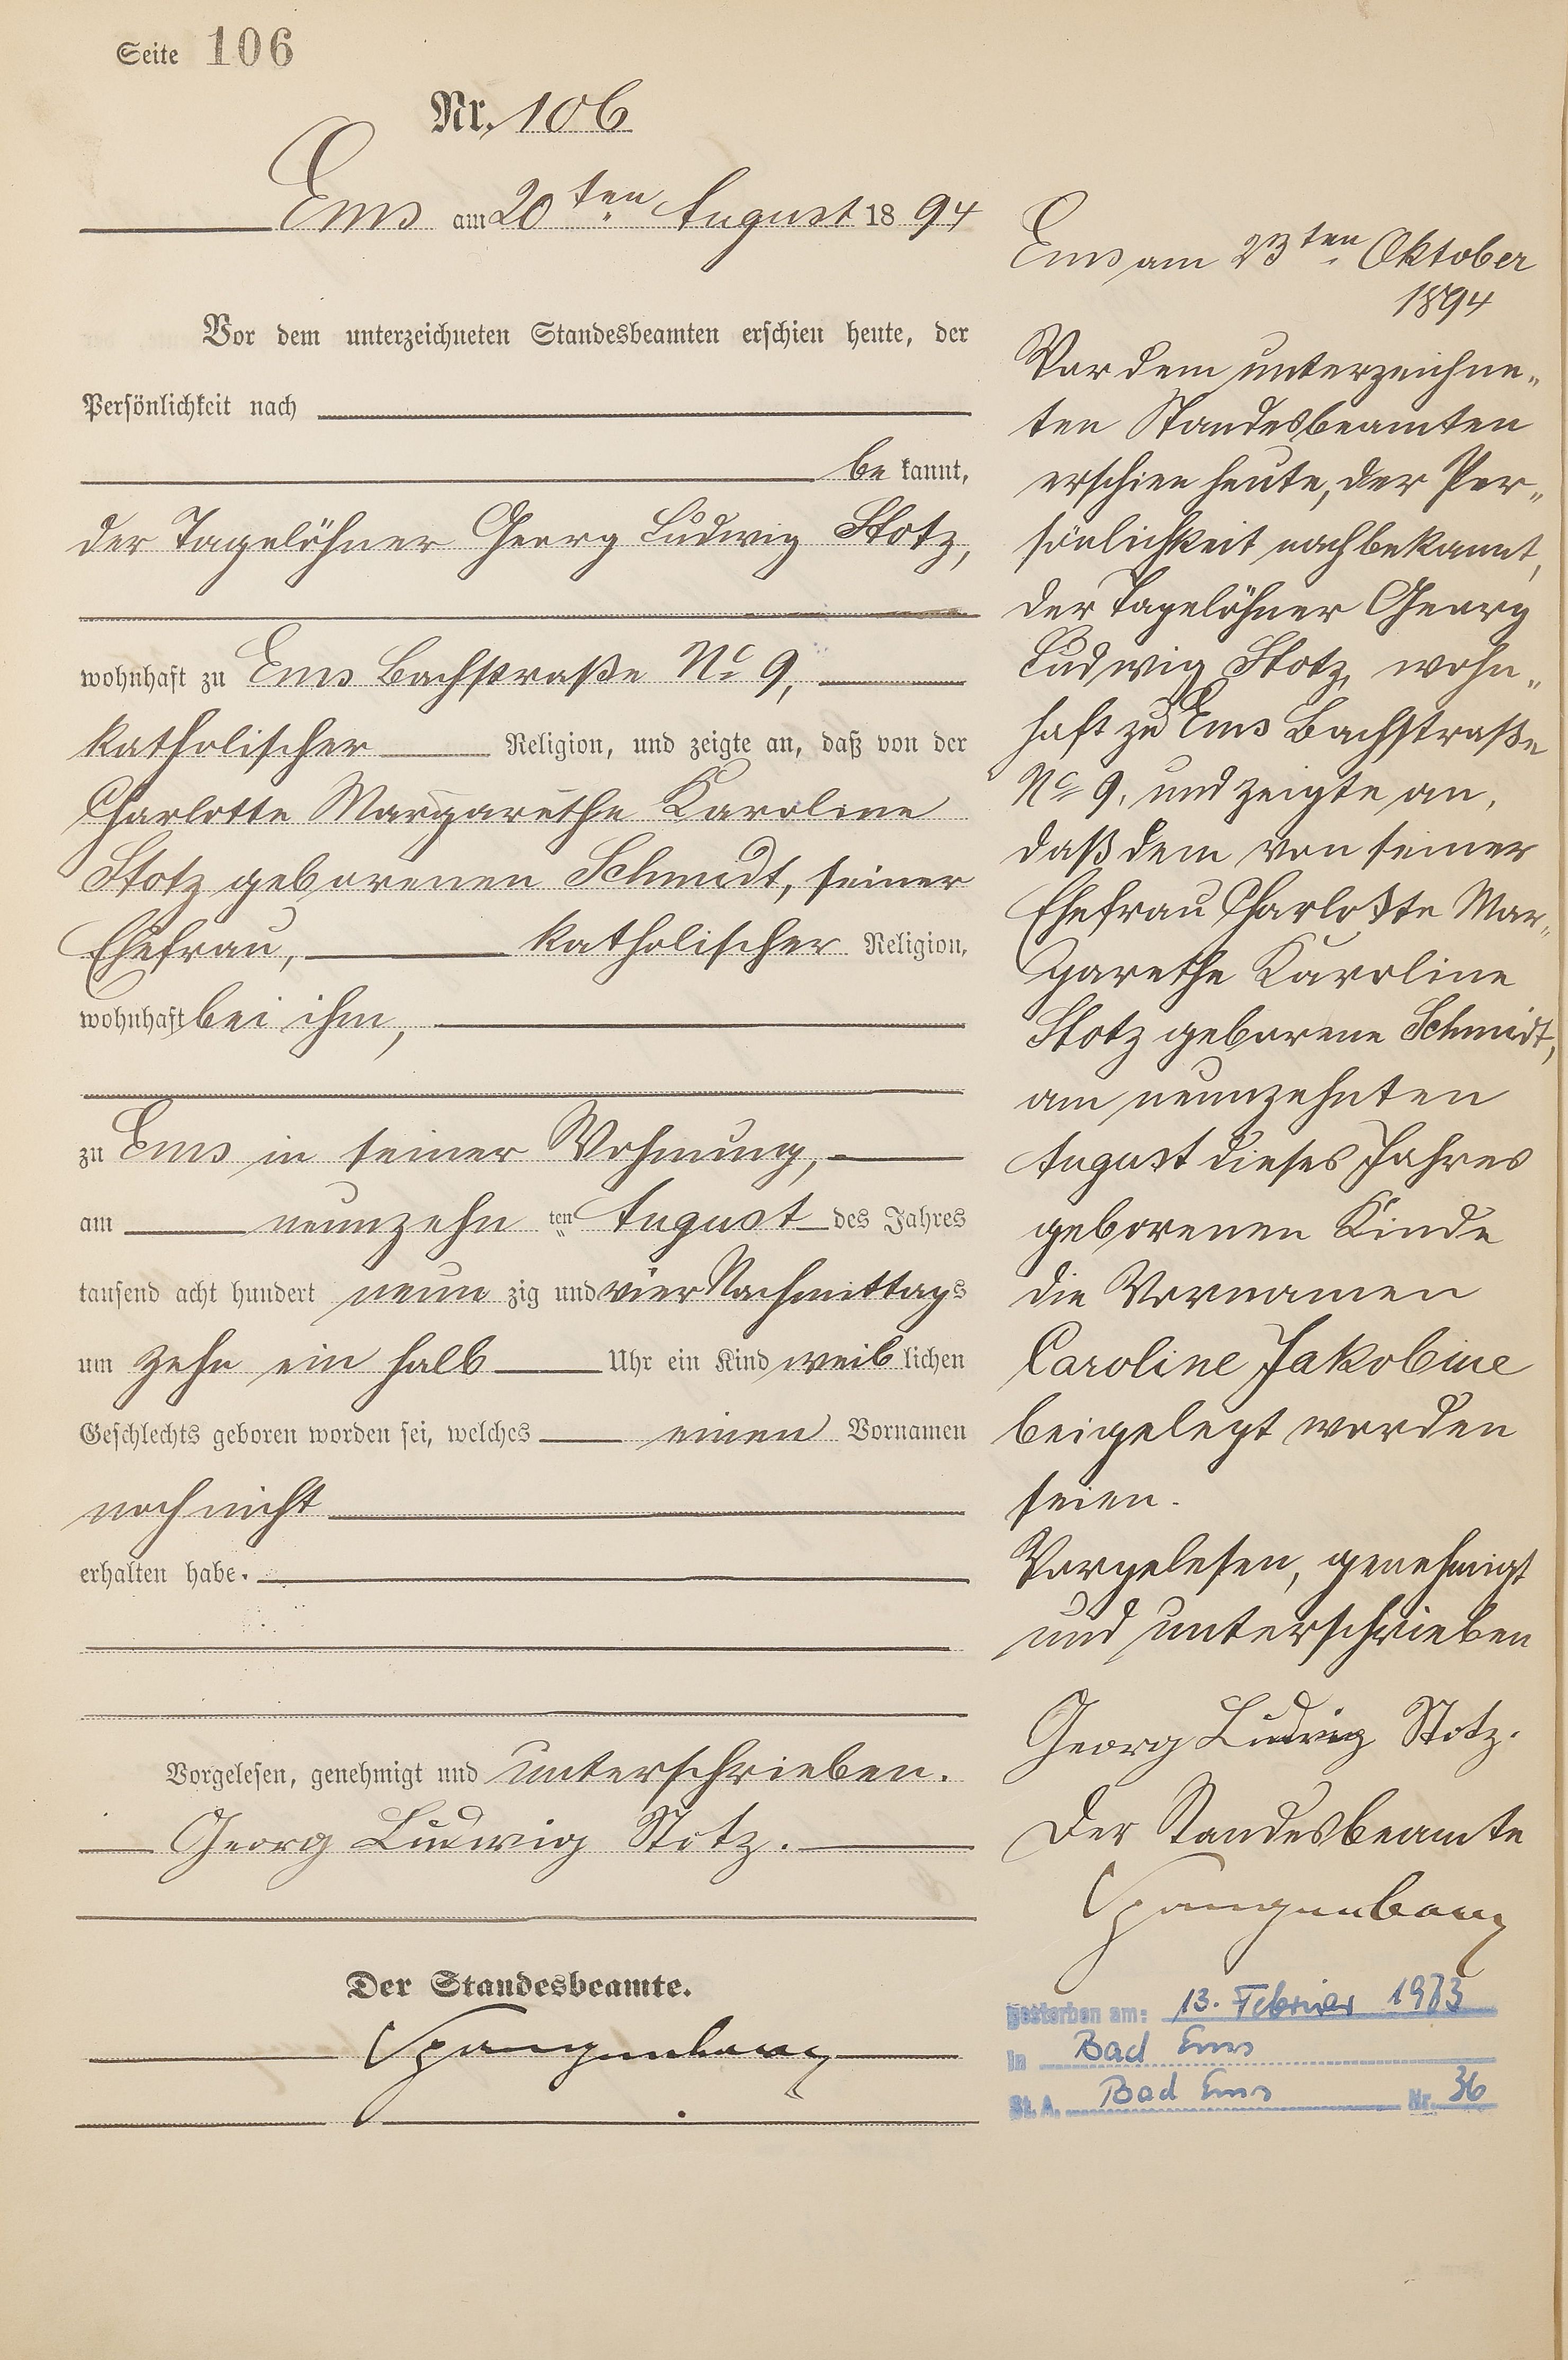 Seite 106
Nr. 106
Ems am 20ten August 1894
Vor dem unterzeichneten Standesbeamten erschien heute, der
Persönlichkeit nach
bekannt,
der Tagelöhner Georg Ludwig Stotz,
wohnhaft zu Ems Bachstraße No 9,
katholischer Religion, und zeigte an, daß von der
Charlotte Margarethe Karoline
Stotz geborenen Schmidt, seiner
Ehefrau, katholischer Religion,
wohnhaft bei ihm,
zu Ems in seiner Wohnung,
am neunzehn ten August des Jahres
tausend acht hundert neunzig und vier Nachmittags
um zehn ein halb Uhr ein Kind weiblichen
Geschlechts geboren worden sei, welches einen Vornamen
noch nicht
erhalten habe.
Vorgelesen, genehmigt und unterschrieben.
Georg Ludwig Stotz.
Der Standesbeamte.
Spangenberg
Ems am 23ten Oktober
1894
Vor dem unterzeichne-
ten Standesbeamten
erschien heute, der Per-
sönlichkeit nach bekannt,
der Tagelöhner Georg
Ludwig Stotz, wohn-
haft zu Ems Bachstraße
No 9, und zeigte an,
daß dem von seiner
Ehefrau Charlotte Mar-
garethe Karoline
Stotz geborene Schmidt,
am neunzehnten
August dieses Jahres
geborenen Kinde
die Vornamen
Caroline Jakobine
beigelegt worden
seien.
Vorgelesen, genehmigt
und unterschrieben
Georg Ludwig Stotz.
Der Standesbeamte
Spangenberg
gestorben am: 13. Februar 1973
in Bad Ems
St. A. Bad Ems Nr. 36